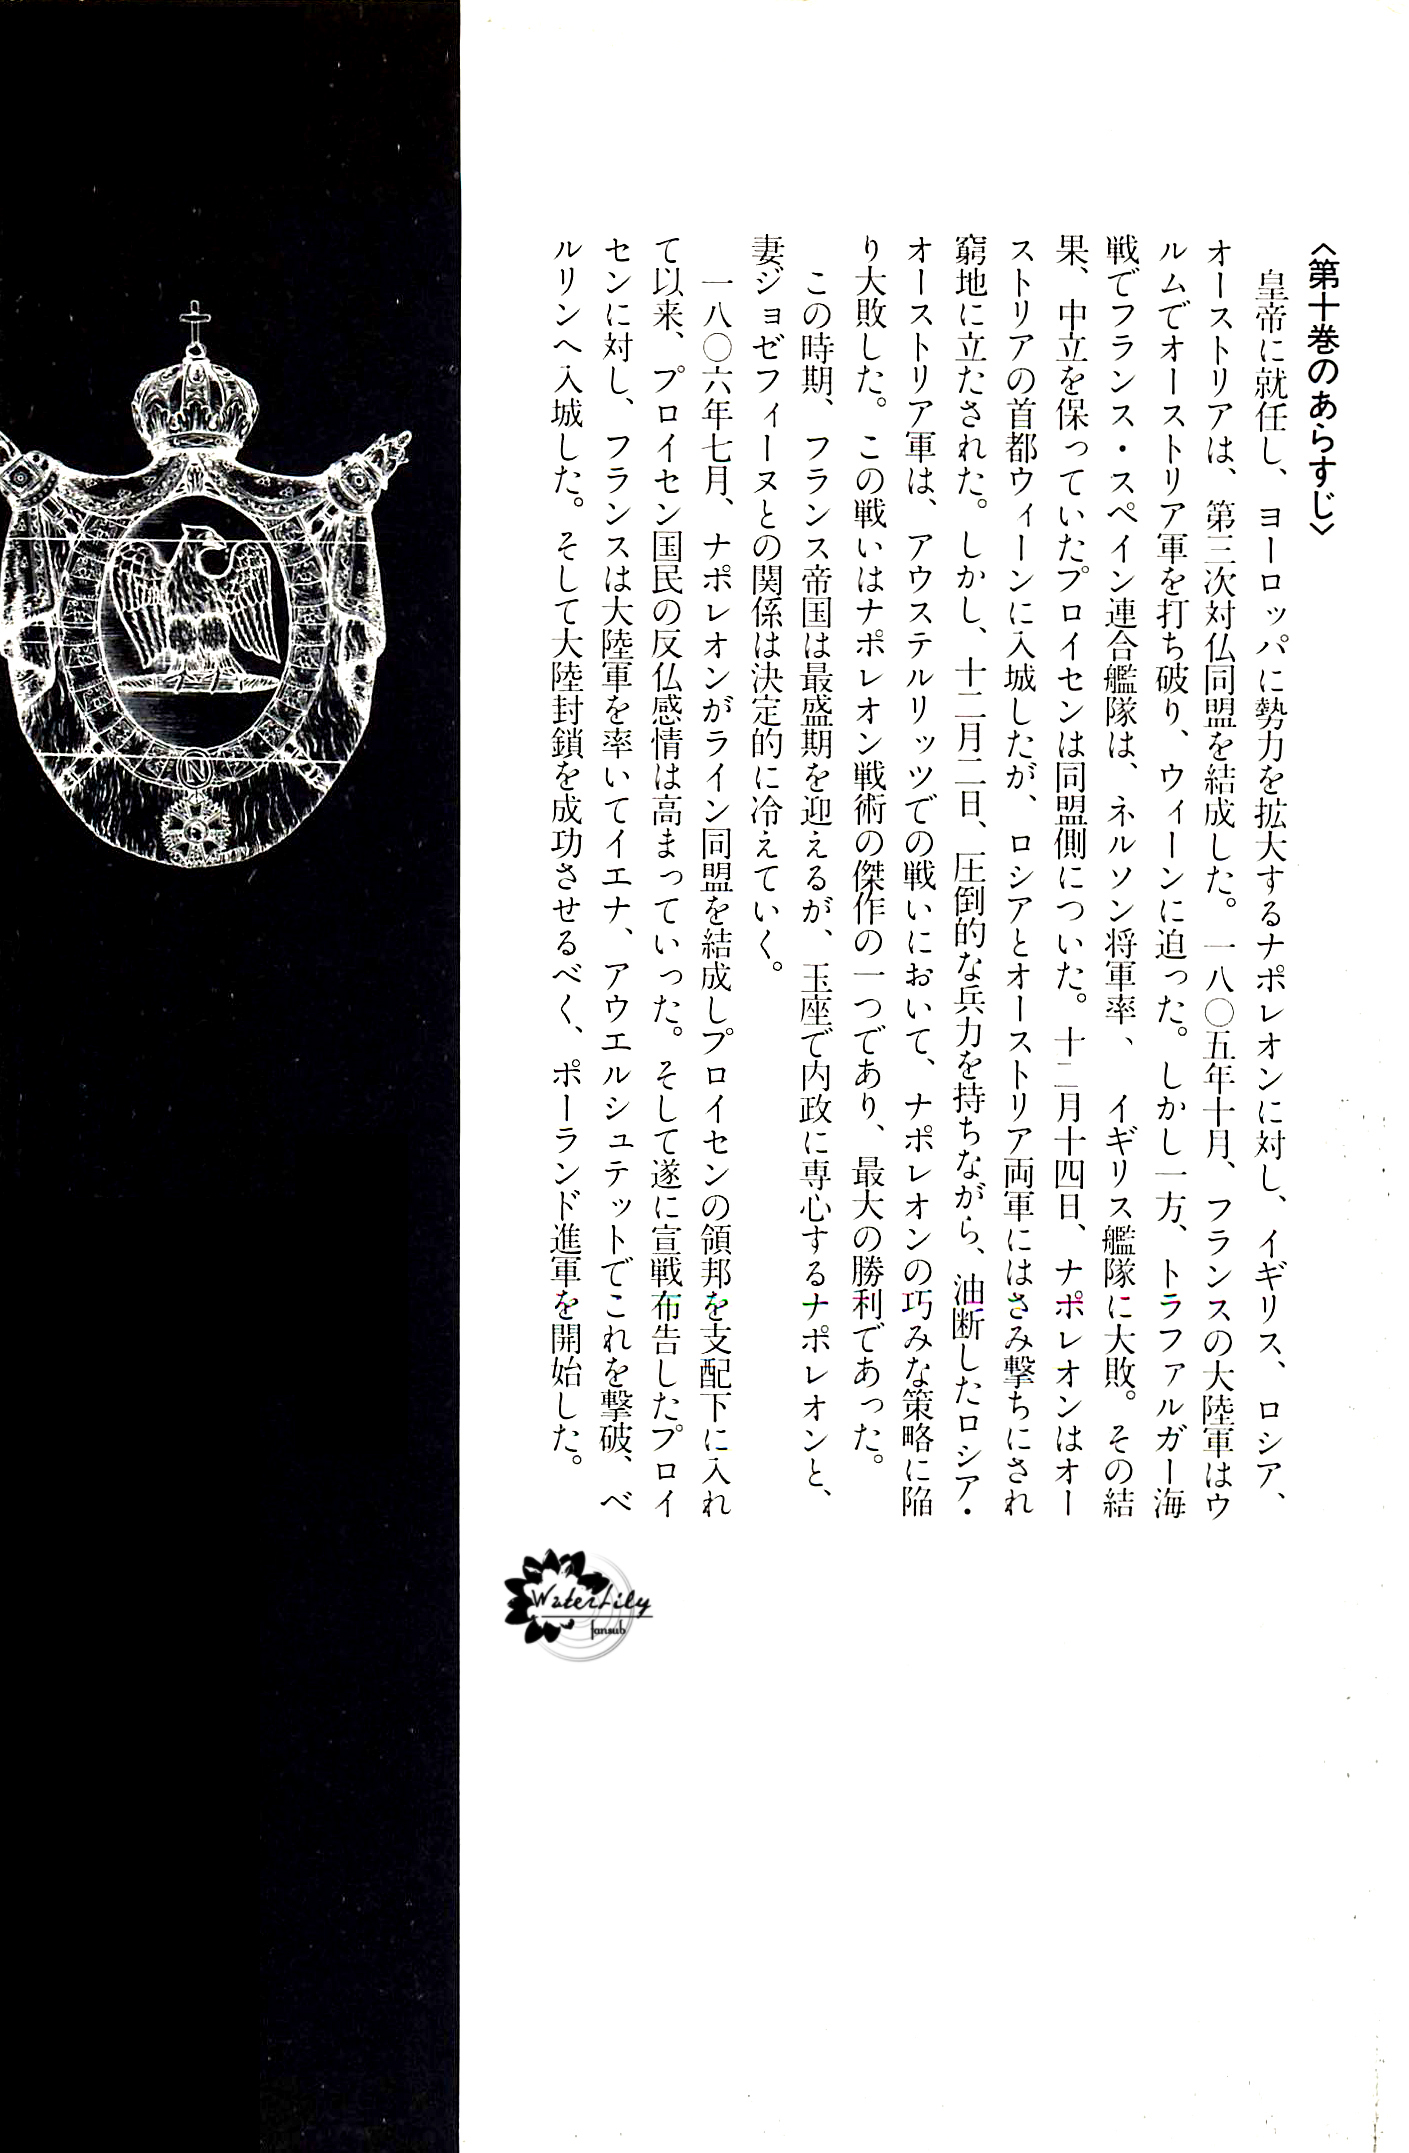 〈第十巻のあらすじ〉
皇帝に就任し、ヨーロッパに勢力を拡大するナポレオンに対し、イギリス、ロシア、
オーストリアは、第三次対仏同盟を結成した。一八〇五年十月、フランスの大陸軍はウ
ルムでオーストリア軍を打ち破り、ウィーンに迫った。しかし一方、トラファルガー海
戦でフランス・スペイン連合艦隊は、ネルソン将軍率、イギリス艦隊に大敗。その結
果、中立を保っていたプロイセンは同盟側についた。十二月十四日、ナポレオンはオー
ストリアの首都ウィーンに入城したが、ロシアとオーストリア両軍にはさみ撃ちにされ
窮地に立たされた。しかし、十二月二日、圧倒的な兵力を持ちながら、油断したロシア・
オーストリア軍は、アウステルリッツでの戦いにおいて、ナポレオンの巧みな策略に陥
り大敗した。この戦いはナポレオン戦術の傑作の一つであり、最大の勝利であった。
この時期、フランス帝国は最盛期を迎えるが、玉座で内政に専心するナポレオンと、
妻ジョゼフィーヌとの関係は決定的に冷えていく。
一八〇六年七月、ナポレオンがライン同盟を結成しプロイセンの領邦を支配下に入れ
て以来、プロイセン国民の反仏感情は高まっていった。そして遂に宣戦布告したプロイ
センに対し、フランスは大陸軍を率いてイエナ、アウエルシュテットでこれを撃破、ベ
ルリンへ入城した。そして大陸封鎖を成功させるべく、ポーランド進軍を開始した。
N
WaterLily
fansub